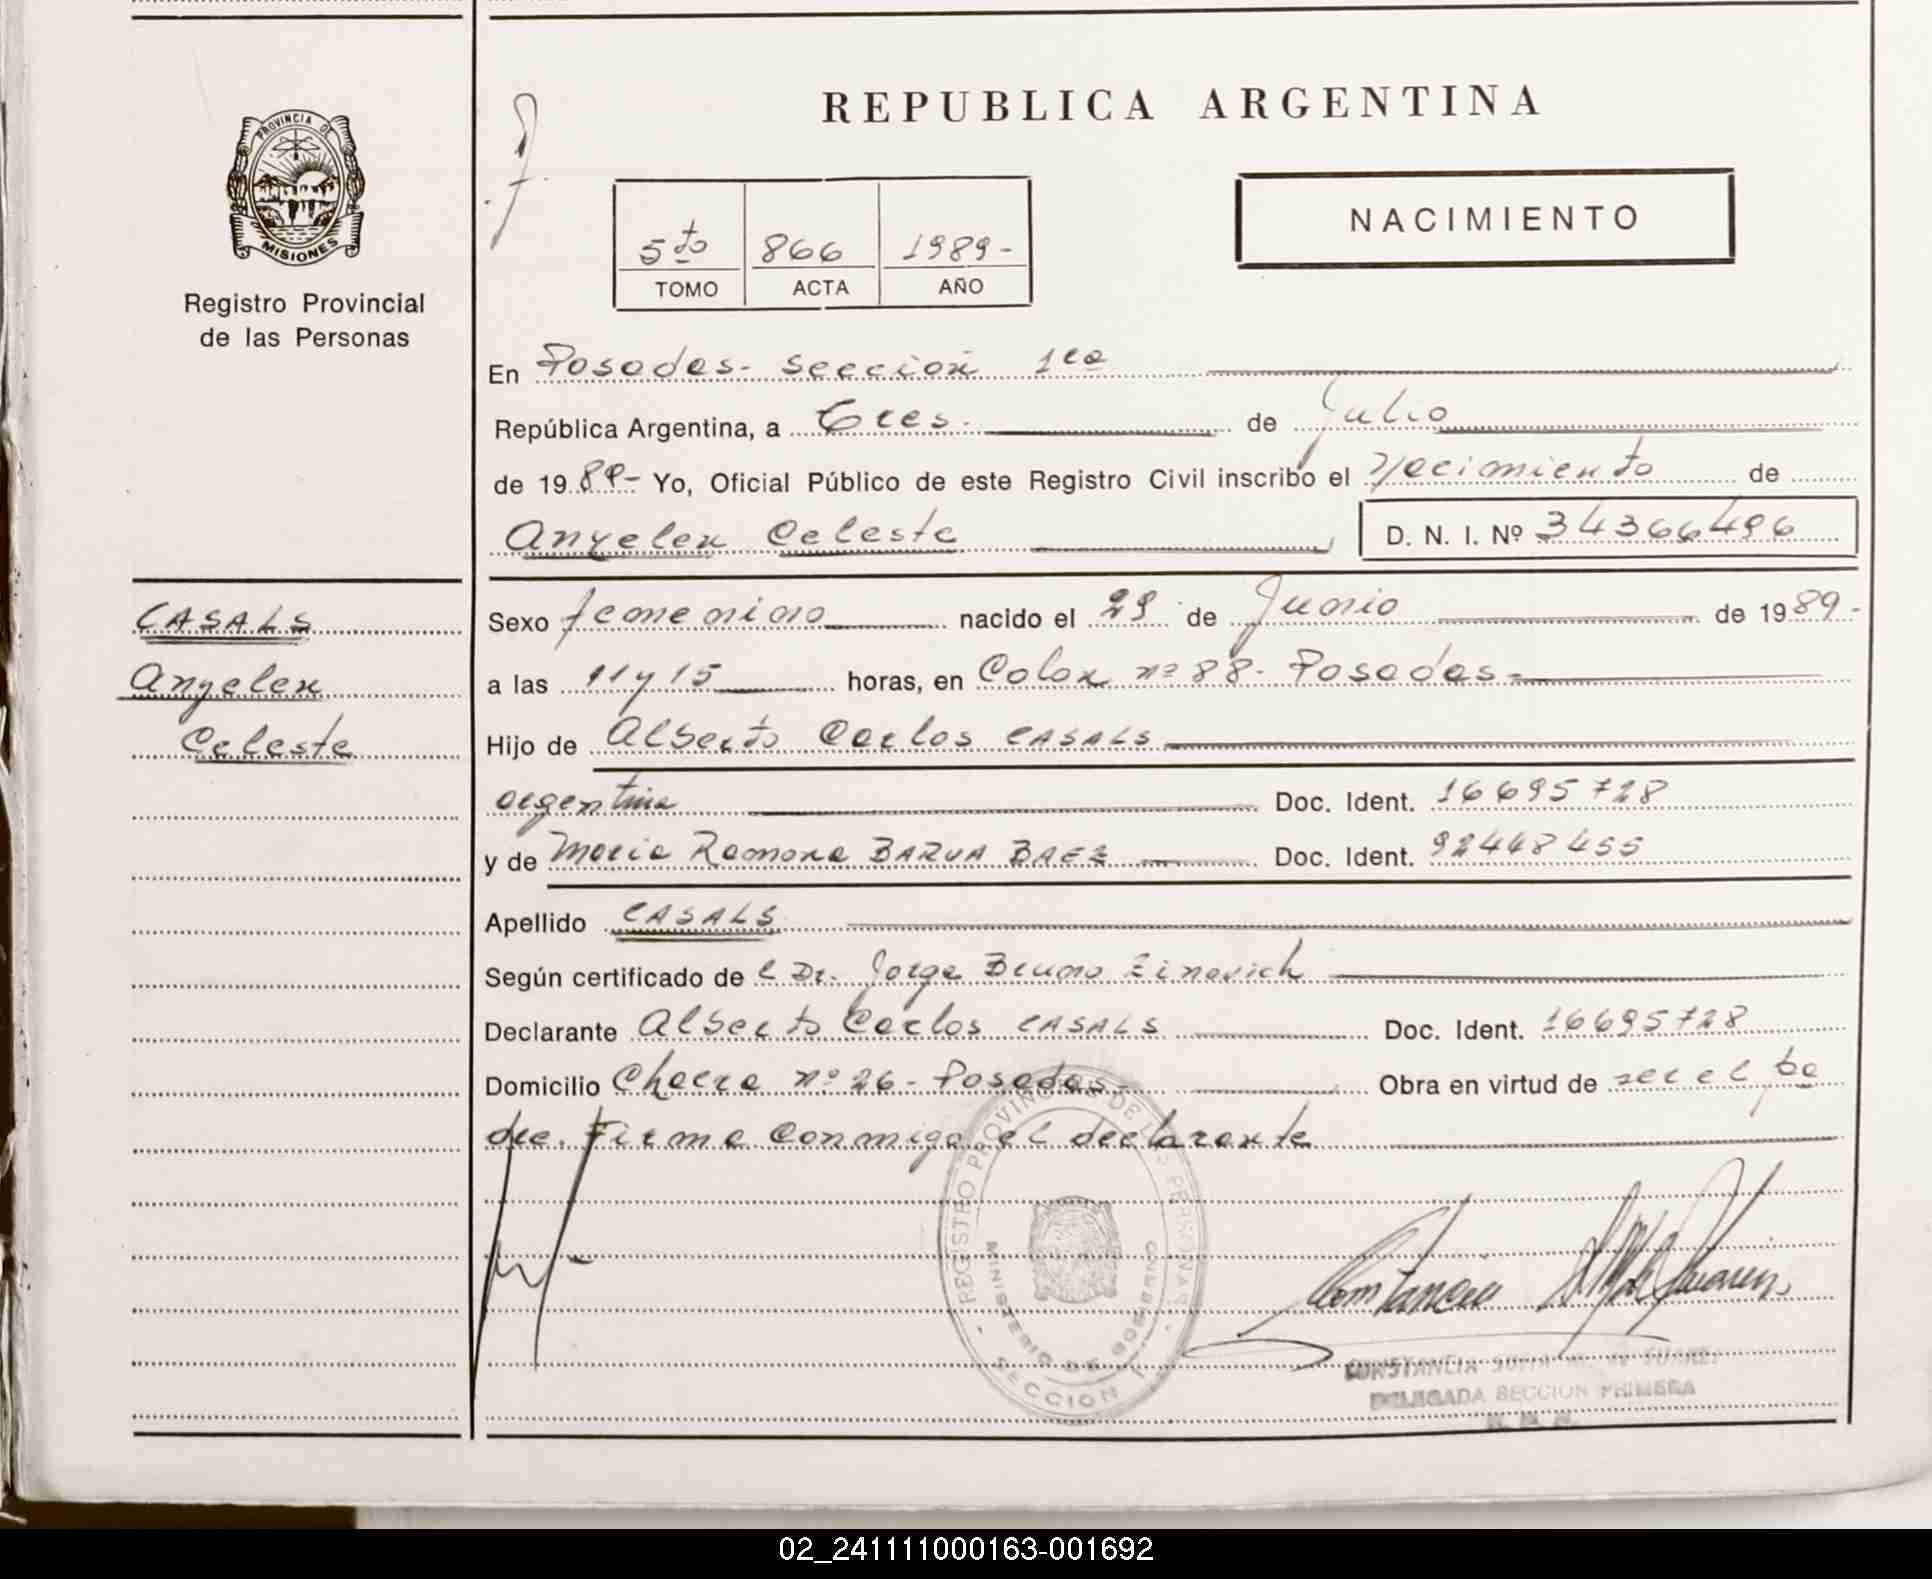 PROVINCIA DE
MISIONES
Registro Provincial
de las Personas
CASALS
Anyelen
Celeste
REPUBLICA ARGENTINA
5to 866 1989-
TOMO ACTA AÑO
NACIMIENTO
En Posadas- seccion 1ra
República Argentina, a Tres- de Julio
de 1989- Yo, Oficial Público de este Registro Civil inscribo el Nacimiento de
Anyelen Celeste D. N. I. Nº 34366496
Sexo femenino nacido el 29 de Junio de 1989-
a las 11 y 15 horas, en Colon nº 88- Posadas-
Hijo de Alberto Carlos CASALS
argentina Doc. Ident. 16695728
y de Maria Ramona BARUA BAEZ Doc. Ident. 92448455
Apellido CASALS
Según certificado de l Dr. Jorge Bruno
Declarante Alberto Carlos CASALS Doc. Ident. 16695728
Domicilio Chacra nº 26- Posadas- Obra en virtud de ser el pa
dre. Firma conmigo el declarante
REGISTRO PROVINCIAL DE LAS PERSONAS
MINISTERIO DE GOBIERNO
SECCION
Constancia
CONSTANCIA SUAREZ
DELEGADA SECCION PRIMERA
02_241111000163-001692